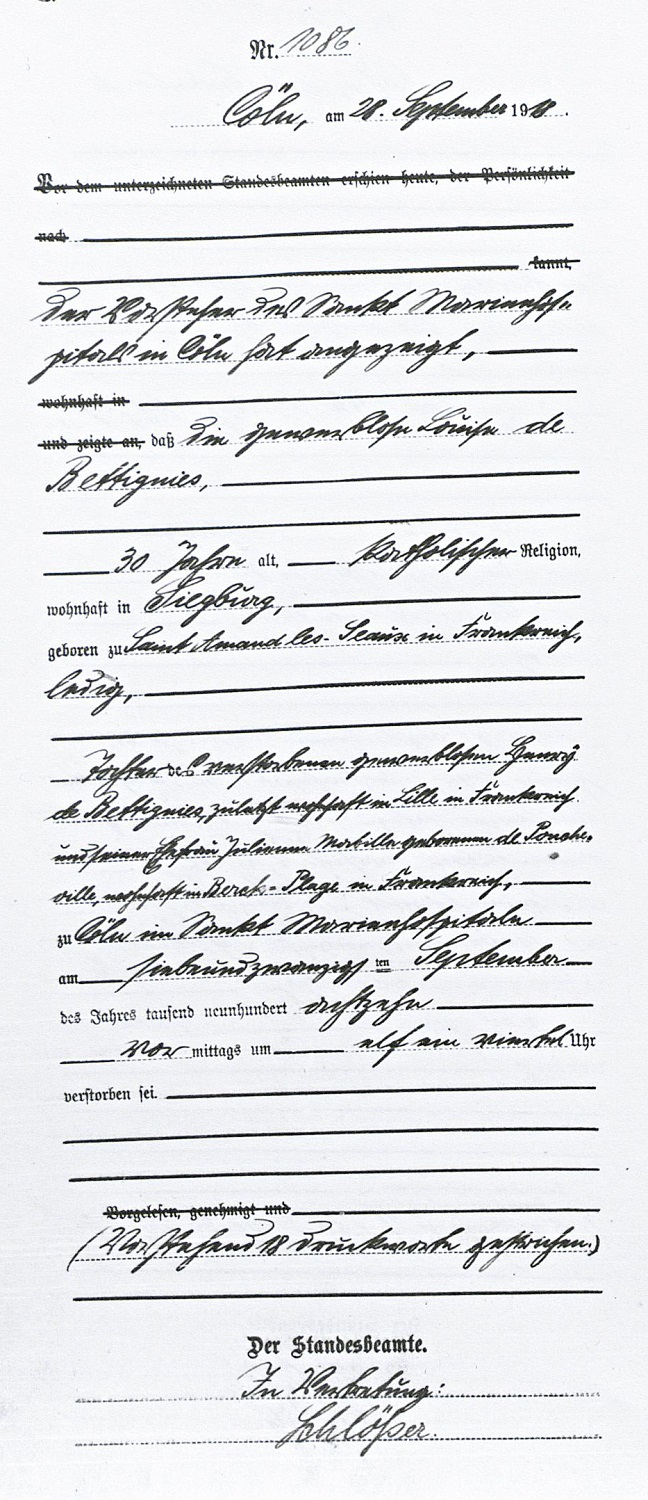 Nr. 1086
Cöln, am 28. September 1918.
Vor dem unterzeichneten Standesbeamten erschien heute, der Persönlichkeit
nach
kannt,
Der Vorsteher des Sankt Marienhos-
pitals in Cöln hat angezeigt,
wohnhaft in
und zeigte an, daß die gewerblose Louise de
Bettignies,
30 Jahre alt, katholischer Religion,
wohnhaft in Siegburg,
geboren zu Saint Amand les-Seaux in Frankreich,
ledig,
Tochter des verstorbenen gewerblosen Henry
de Bettignies, zuletzt wohnhaft in Lille in Frankreich
und seiner Ehefrau Julienne Mabille geborenen de Ponche-
ville, wohnhaft in Berck-Plage in Frankreich,
zu Cöln im Sankt Marienhospitale
am siebenundzwanzigsten September
des Jahres tausend neunhundert achtzehn
vor mittags um elf ein viertel Uhr
verstorben sei.
Vorgelesen, genehmigt und
(Vorstehend 18 Druckworte gestrichen.)
Der Standesbeamte.
In Vertretung:
Schlößer.